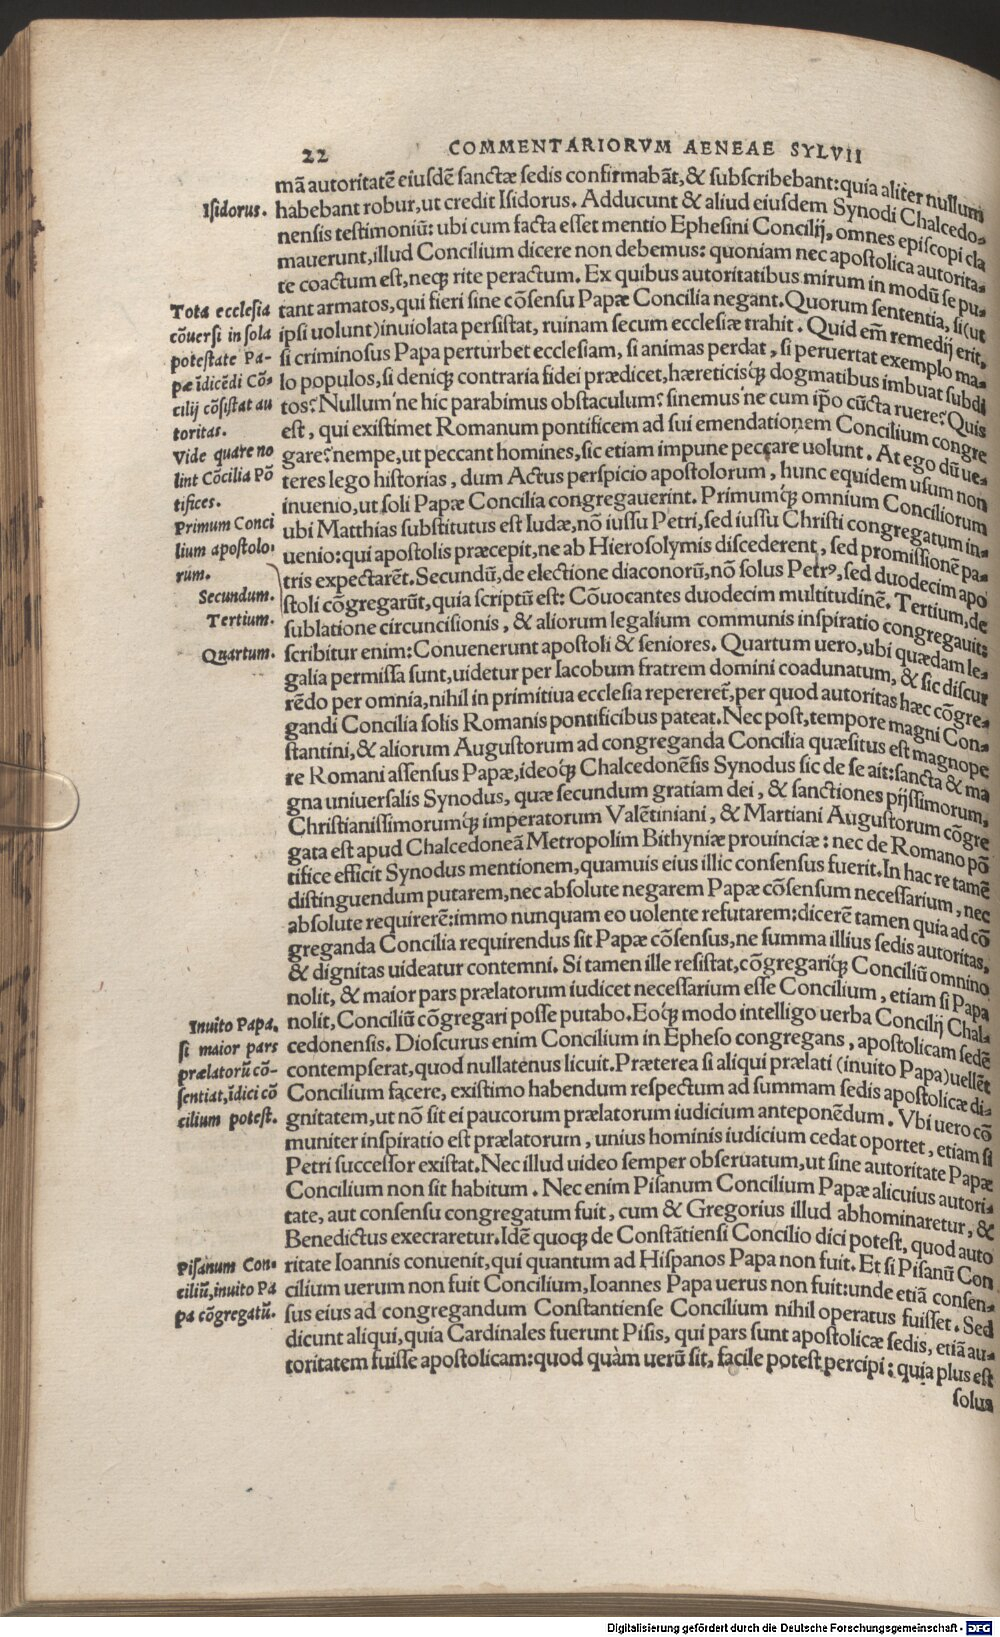 22 COMMENTARIORVM AENEAE SYLVII
mã autoritatẽ eiusdẽ sanctæ sedis confirmabãt, & subscribebant: quia aliter nullum
habebant robur, ut credit Isidorus. Adducunt & aliud eiusdem Synodi Chalcedo-
nensis testimoniũ: ubi cum facta esset mentio Ephesini Concilij, omnes episcopi cla
mauerunt, illud Concilium dicere non debemus: quoniam nec apostolica autorita-
te coactum est, neqꝫ rite peractum. Ex quibus autoritatibus mirum in modũ se pu-
tant armatos, qui fieri sine cõsensu Papæ Concilia negant. Quorum sententia, si (ut
ipsi uolunt) inuiolata persistat, ruinam secum ecclesiæ trahit. Quid em̃ remedij erit,
si criminosus Papa perturbet ecclesiam, si animas perdat, si peruertat exemplo ma-
lo populos, si deniqꝫ contraria fidei prædicet, hæreticisqꝫ dogmatibus imbuat subdi
tos? Nullum'ne hic parabimus obstaculum? sinemus'ne cum ip̃o cũcta ruere? Quis
est, qui existimet Romanum pontificem ad sui emendationem Concilium congre
gare? nempe, ut peccant homines, sic etiam impune peccare uolunt. At ego dũ ue-
teres lego historias, dum Actus perspicio apostolorum, hunc equidem usum non
inuenio, ut soli Papæ Concilia congregauerint. Primumqꝫ omnium Conciliorum
ubi Matthias substitutus est Iudæ, nõ iussu Petri, sed iussu Christi congregatum in-
uenio: qui apostolis præcepit, ne ab Hierosolymis discederent, sed promissionẽ pa-
tris expectarẽt. Secundũ, de electione diaconorũ, nõ solus Petrꝰ, sed duodecim apo
stoli cõgregarũt, quia scriptũ est: Cõuocantes duodecim multitudinẽ. Tertium, de
sublatione circuncisionis, & aliorum legalium communis inspiratio congregauit:
scribitur enim: Conuenerunt apostoli & seniores. Quartum uero, ubi quædam le-
galia permissa sunt, uidetur per Iacobum fratrem domini coadunatum, & sic discur
rẽdo per omnia, nihil in primitiua ecclesia repereret̃, per quod autoritas hæc cõgre-
gandi Concilia solis Romanis pontificibus pateat. Nec post, tempore magni Con-
stantini, & aliorum Augustorum ad congreganda Concilia quæsitus est magnope
re Romani assensus Papæ, ideoqꝫ Chalcedonẽsis Synodus sic de se ait: sancta & ma
gna uniuersalis Synodus, quæ secundum gratiam dei, & sanctiones pijssimorum,
Christianissimorumqꝫ imperatorum Valẽtiniani, & Martiani Augustorum cõgre
gata est apud Chalcedoneã Metropolim Bithyniæ prouinciæ: nec de Romano põ
tifice efficit Synodus mentionem, quamuis eius illic consensus fuerit. In hac re tamẽ
distinguendum putarem, nec absolute negarem Papæ cõsensum necessarium, nec
absolute requirerẽ: immo nunquam eo uolente refutarem: dicerẽ tamen quia ad cõ
greganda Concilia requirendus sit Papæ cõsensus, ne summa illius sedis autoritas,
& dignitas uideatur contemni. Si tamen ille resistat, cõgregariqꝫ Conciliũ omnino
nolit, & maior pars prælatorum iudicet necessarium esse Concilium, etiam si Papa
nolit, Conciliũ cõgregari posse putabo. Eoqꝫ modo intelligo uerba Concilij Chal-
cedonensis. Dioscurus enim Concilium in Epheso congregans, apostolicam sedẽ
contempserat, quod nullatenus licuit. Præterea si aliqui prælati (inuito Papa) uellẽt
Concilium facere, existimo habendum respectum ad summam sedis apostolicæ di-
gnitatem, ut nõ sit ei paucorum prælatorum iudicium anteponẽdum. Vbi uero cõ
muniter inspiratio est prælatorum, unius hominis iudicium cedat oportet, etiam si
Petri successor existat. Nec illud uideo semper obseruatum, ut sine autoritate Papæ
Concilium non sit habitum. Nec enim Pisanum Concilium Papæ alicuius autori-
tate, aut consensu congregatum fuit, cum & Gregorius illud abhominaretur, &
Benedictus execraretur. Idẽ quoqꝫ de Constãtiensi Concilio dici potest, quod auto
ritate Ioannis conuenit, qui quantum ad Hispanos Papa non fuit. Et si Pisanũ Con
cilium uerum non fuit Concilium, Ioannes Papa uerus non fuit: unde etiã consen-
sus eius ad congregandum Constantiense Concilium nihil operatus fuisset. Sed
dicunt aliqui, quia Cardinales fuerunt Pisis, qui pars sunt apostolicæ sedis, etiã au-
toritatem fuisse apostolicam: quod quàm uerũ sit, facile potest percipi: quia plus est
solus
Isidorus.
Tota ecclesia
cõuersi in sola
potestate Pa-
pæ ĩdicẽdi Cõ-
cilij cõsistat au
toritas.
Vide quare no
lint Cõcilia Põ
tifices.
Primum Conci
lium apostolo-
rum.
Secundum.
Tertium.
Quartum.
Inuito Papa,
si maior pars
prælatorũ cõ-
sentiat, ĩdici cõ
cilium potest.
Pisanum Con-
ciliũ, inuito Pa
pa cõgregatũ.
Digitalisierung gefördert durch die Deutsche Forschungsgemeinschaft - DFG